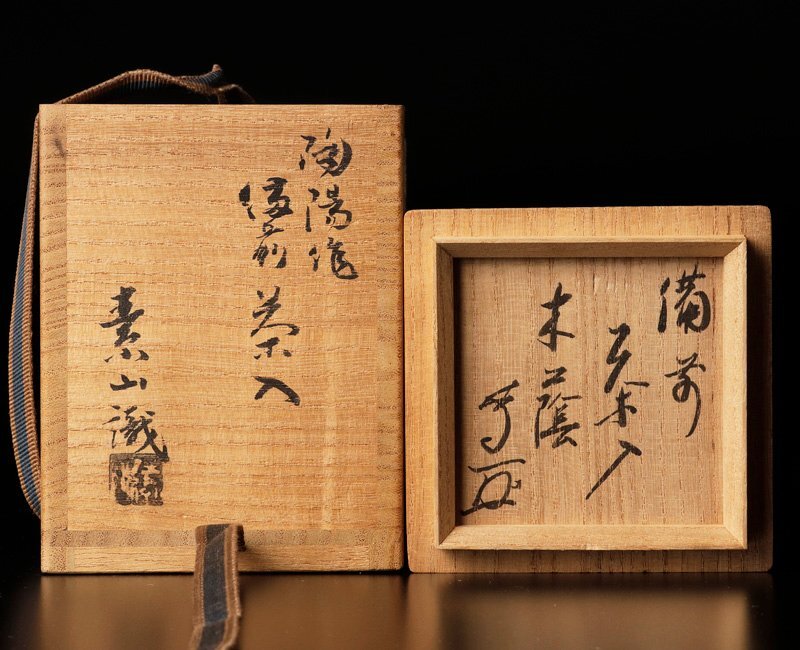 陶陽作
備前 茶入
素山識
備前
茶入
木蔭